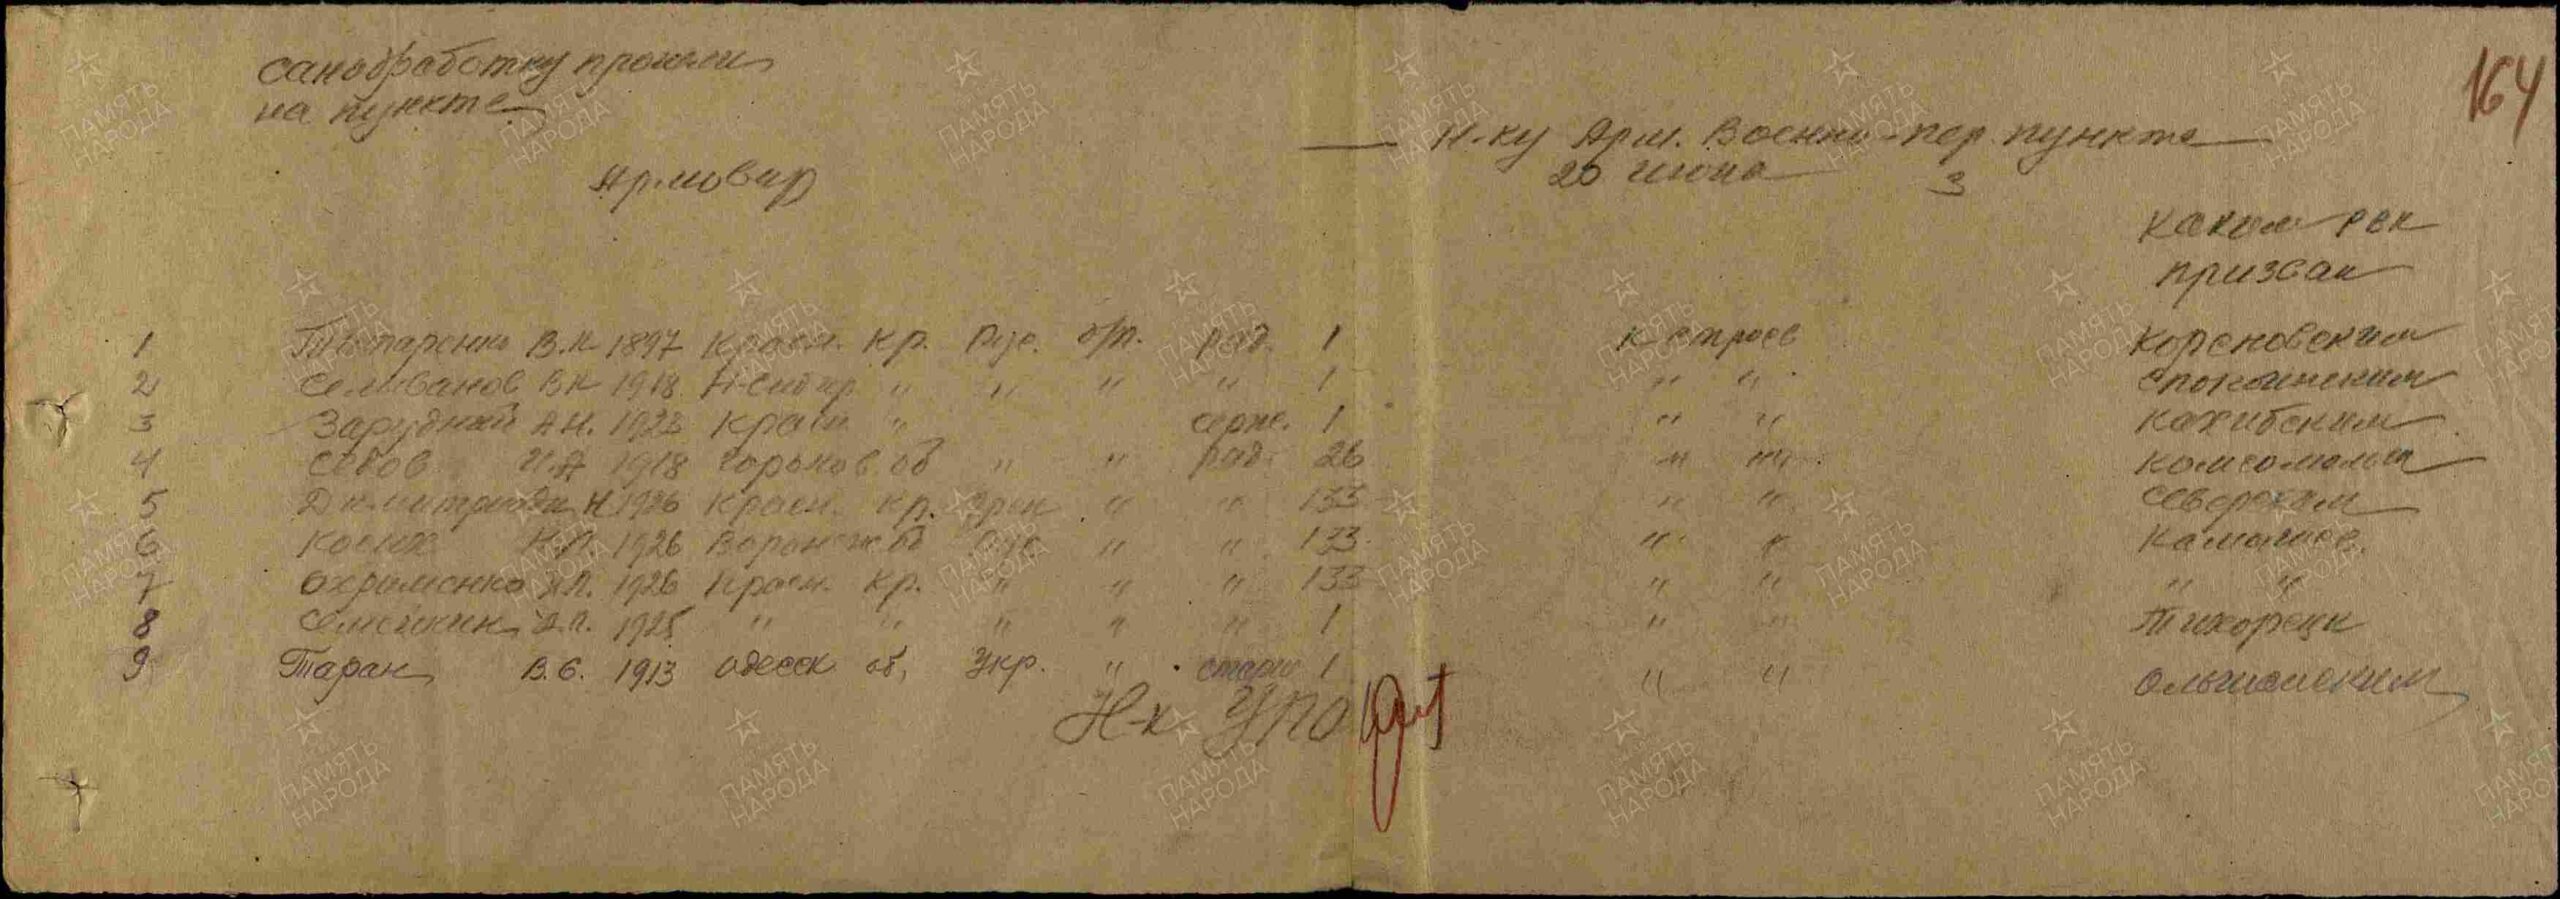 164
санобработку прошли
на пункте
Н-ку Арм. Военно-пер. пункта
20 июня 3
Армовир
каким рвк
призван
1 В.К 1897 Красн. кр. Рус. б/п. ряд. 1 к строев Кореновским
2 Селиванов В К 1918 Н-Сибир " " " " 1 " "
3 Зарудный А Н. 1923 Красн " серж. 1 " " Кахибским
4 Седов И.А 1918 Горьков об " " ряд. 26 " " Комсомольск
5 Н 1926 Красн. кр. Грек " " 133 " " Северским
6 Косих 1926 Воронеж об Рус " " 133 " "
7 Охрименко 1926 Красн. кр. " " " 133 " " " "
8 Семыкин 1925 " " " " " 1 " " Тихорецк
9 Таран В.С. 1913 Одесск об, Укр. " старш 1 " "
Н-к УПО
ПАМЯТЬ
НАРОДА